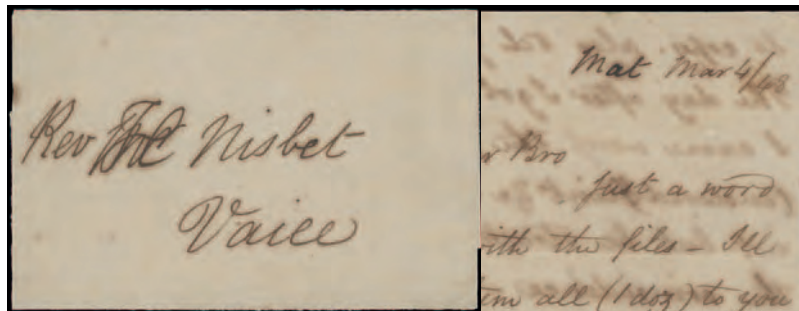 Rev Nisbet
Vaiee
Mat Mar 4/48
r Bro
Just a word
ith the files - I'll
em all (1 doz) to you